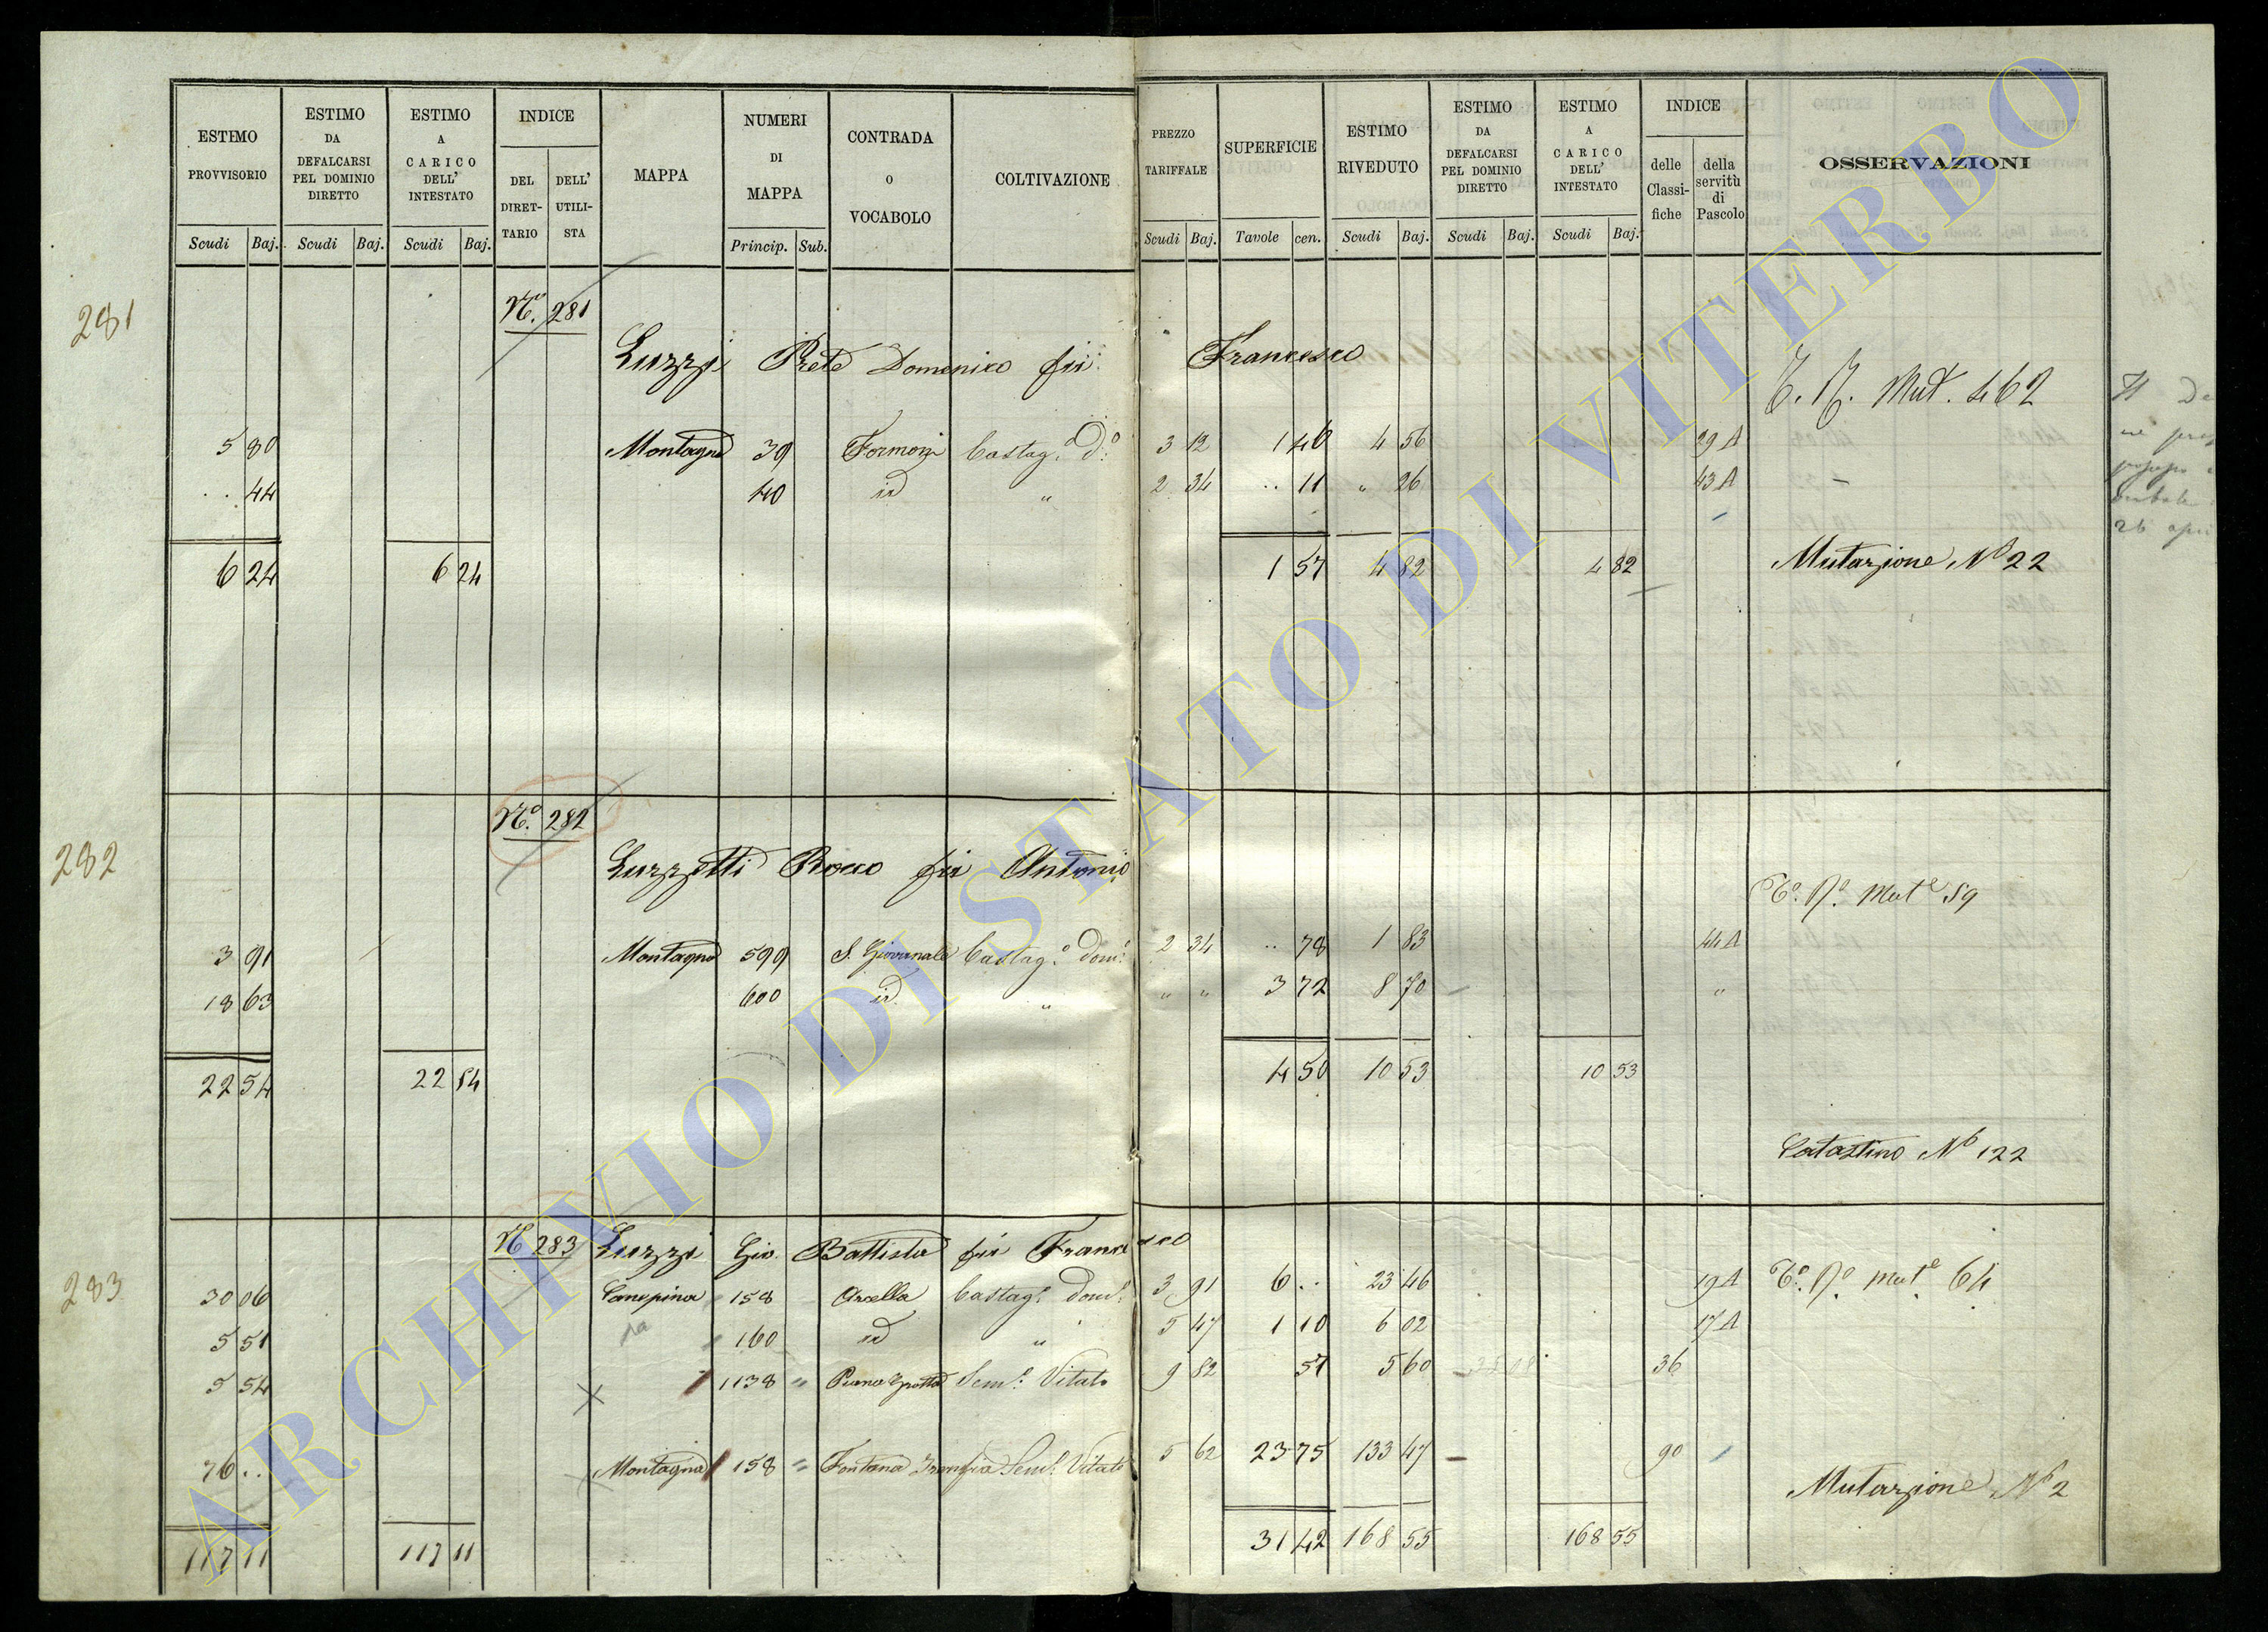 ESTIMO PROVVISORIO | ESTIMO DA DEFALCARSI PEL DOMINIO DIRETTO | ESTIMO A CARICO DELL' INTESTATO | INDICE DEL DIRETTARIO | DELL' UTILISTA | MAPPA | NUMERI DI MAPPA | CONTRADA O VOCABOLO | COLTIVAZIONE | PREZZO TARIFFALE | SUPERFICIE | ESTIMO RIVEDUTO | ESTIMO DA DEFALCARSI PEL DOMINIO DIRETTO | ESTIMO A CARICO DELL' INTESTATO | INDICE delle Classifiche | della servitù di Pascolo | OSSERVAZIONI
Scudi Baj. | Scudi Baj. | Scudi Baj. | Princip. Sub. | Scudi Baj. | Tavole cen. | Scudi Baj. | Scudi Baj. | Scudi Baj.
281 Nº. 281
Luzzi Prete Domenico fu Francesco
Mut. 462
5 80 Montagna 39 Castag.º D.º 3 12 1 46 4 56 29 A
.. 44 40 id " 2 34 .. 11 " 26 43 A
6 24 6 24 1 57 4 82 4 82 Mutazione Nº 22
282 Nº. 282
Luzzetti Rocco fu Antonio
Mut.e 59
3 91 Montagna 599 S. Giovenale Castag.º dom.º 2 34 .. 78 1 83 44 A
18 63 600 id " " " 3 72 8 70 "
22 54 22 54 4 50 10 53 10 53
Catastino Nº 122
283 Nº 283 Luzzi Gio. Battista fu Francesco
30 06 Canepina 158 Arcella Castag.º dom.º 3 91 6 .. 23 46 19 A Mut.e 64
5 51 na 160 id " 5 47 1 10 6 02 17 A
5 54 1138 " Sem.º Vitato 9 82 57 5 60 36
76 .. Montagna 158 " Fontana Sem.º Vitato 5 62 23 75 133 47 90
Mutazione Nº 2
117 11 117 11 31 42 168 55 168 55
ARCHIVIO DI STATO DI VITERBO